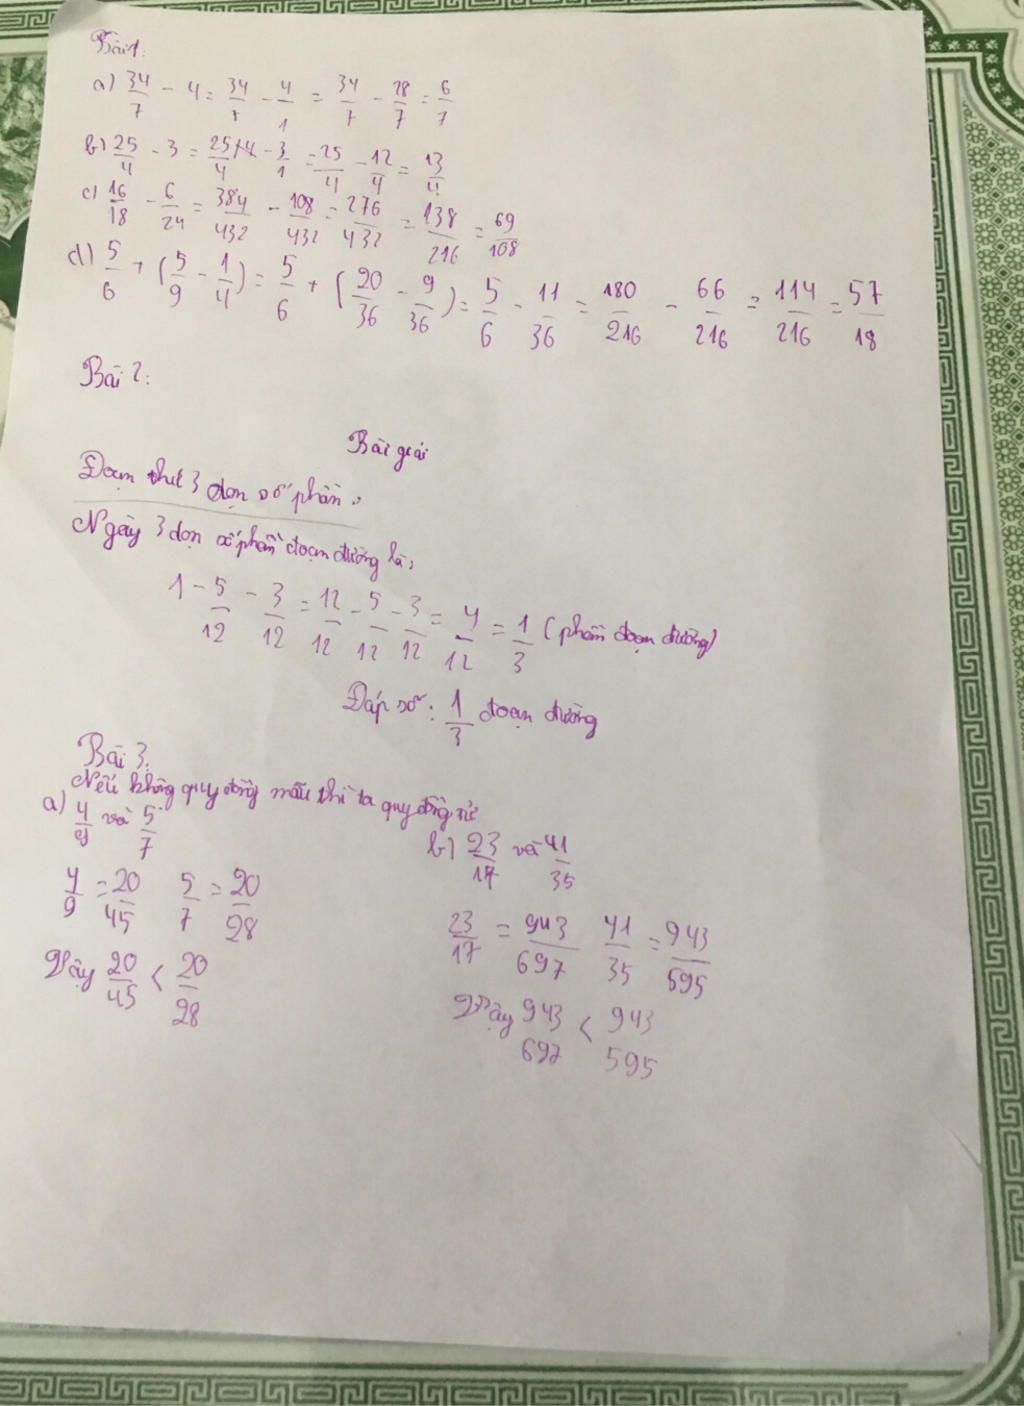 Bài 1:
a) 34/7 - 4 = 34/7 - 4/1 = 34/7 - 28/7 = 6/7
b) 25/4 - 3 = 25/4 - 3/1 = 25/4 - 12/4 = 13/4
c) 16/18 - 6/24 = 384/432 - 108/432 = 276/432 = 138/216 = 69/108
d) 5/6 + (5/9 - 1/4) = 5/6 + (20/36 - 9/36) = 5/6 - 11/36 = 180/216 - 66/216 = 114/216 = 57/18
Bài 2:
Bài giải
Đoạn thứ 3 dọn số phần:
Ngày 3 dọn số phần đoạn đường là:
1 - 5/12 - 3/12 = 12/12 - 5/12 - 3/12 = 4/12 = 1/3 (phần đoạn đường)
Đáp số: 1/3 đoạn đường
Bài 3:
Nếu không quy đồng mẫu thì ta quy đồng tử
a) 4/9 và 5/7
4/9 = 20/45 5/7 = 20/28
Vậy 20/45 < 20/28
b) 23/17 và 41/35
23/17 = 943/697 41/35 = 943/595
Vậy 943/697 < 943/595